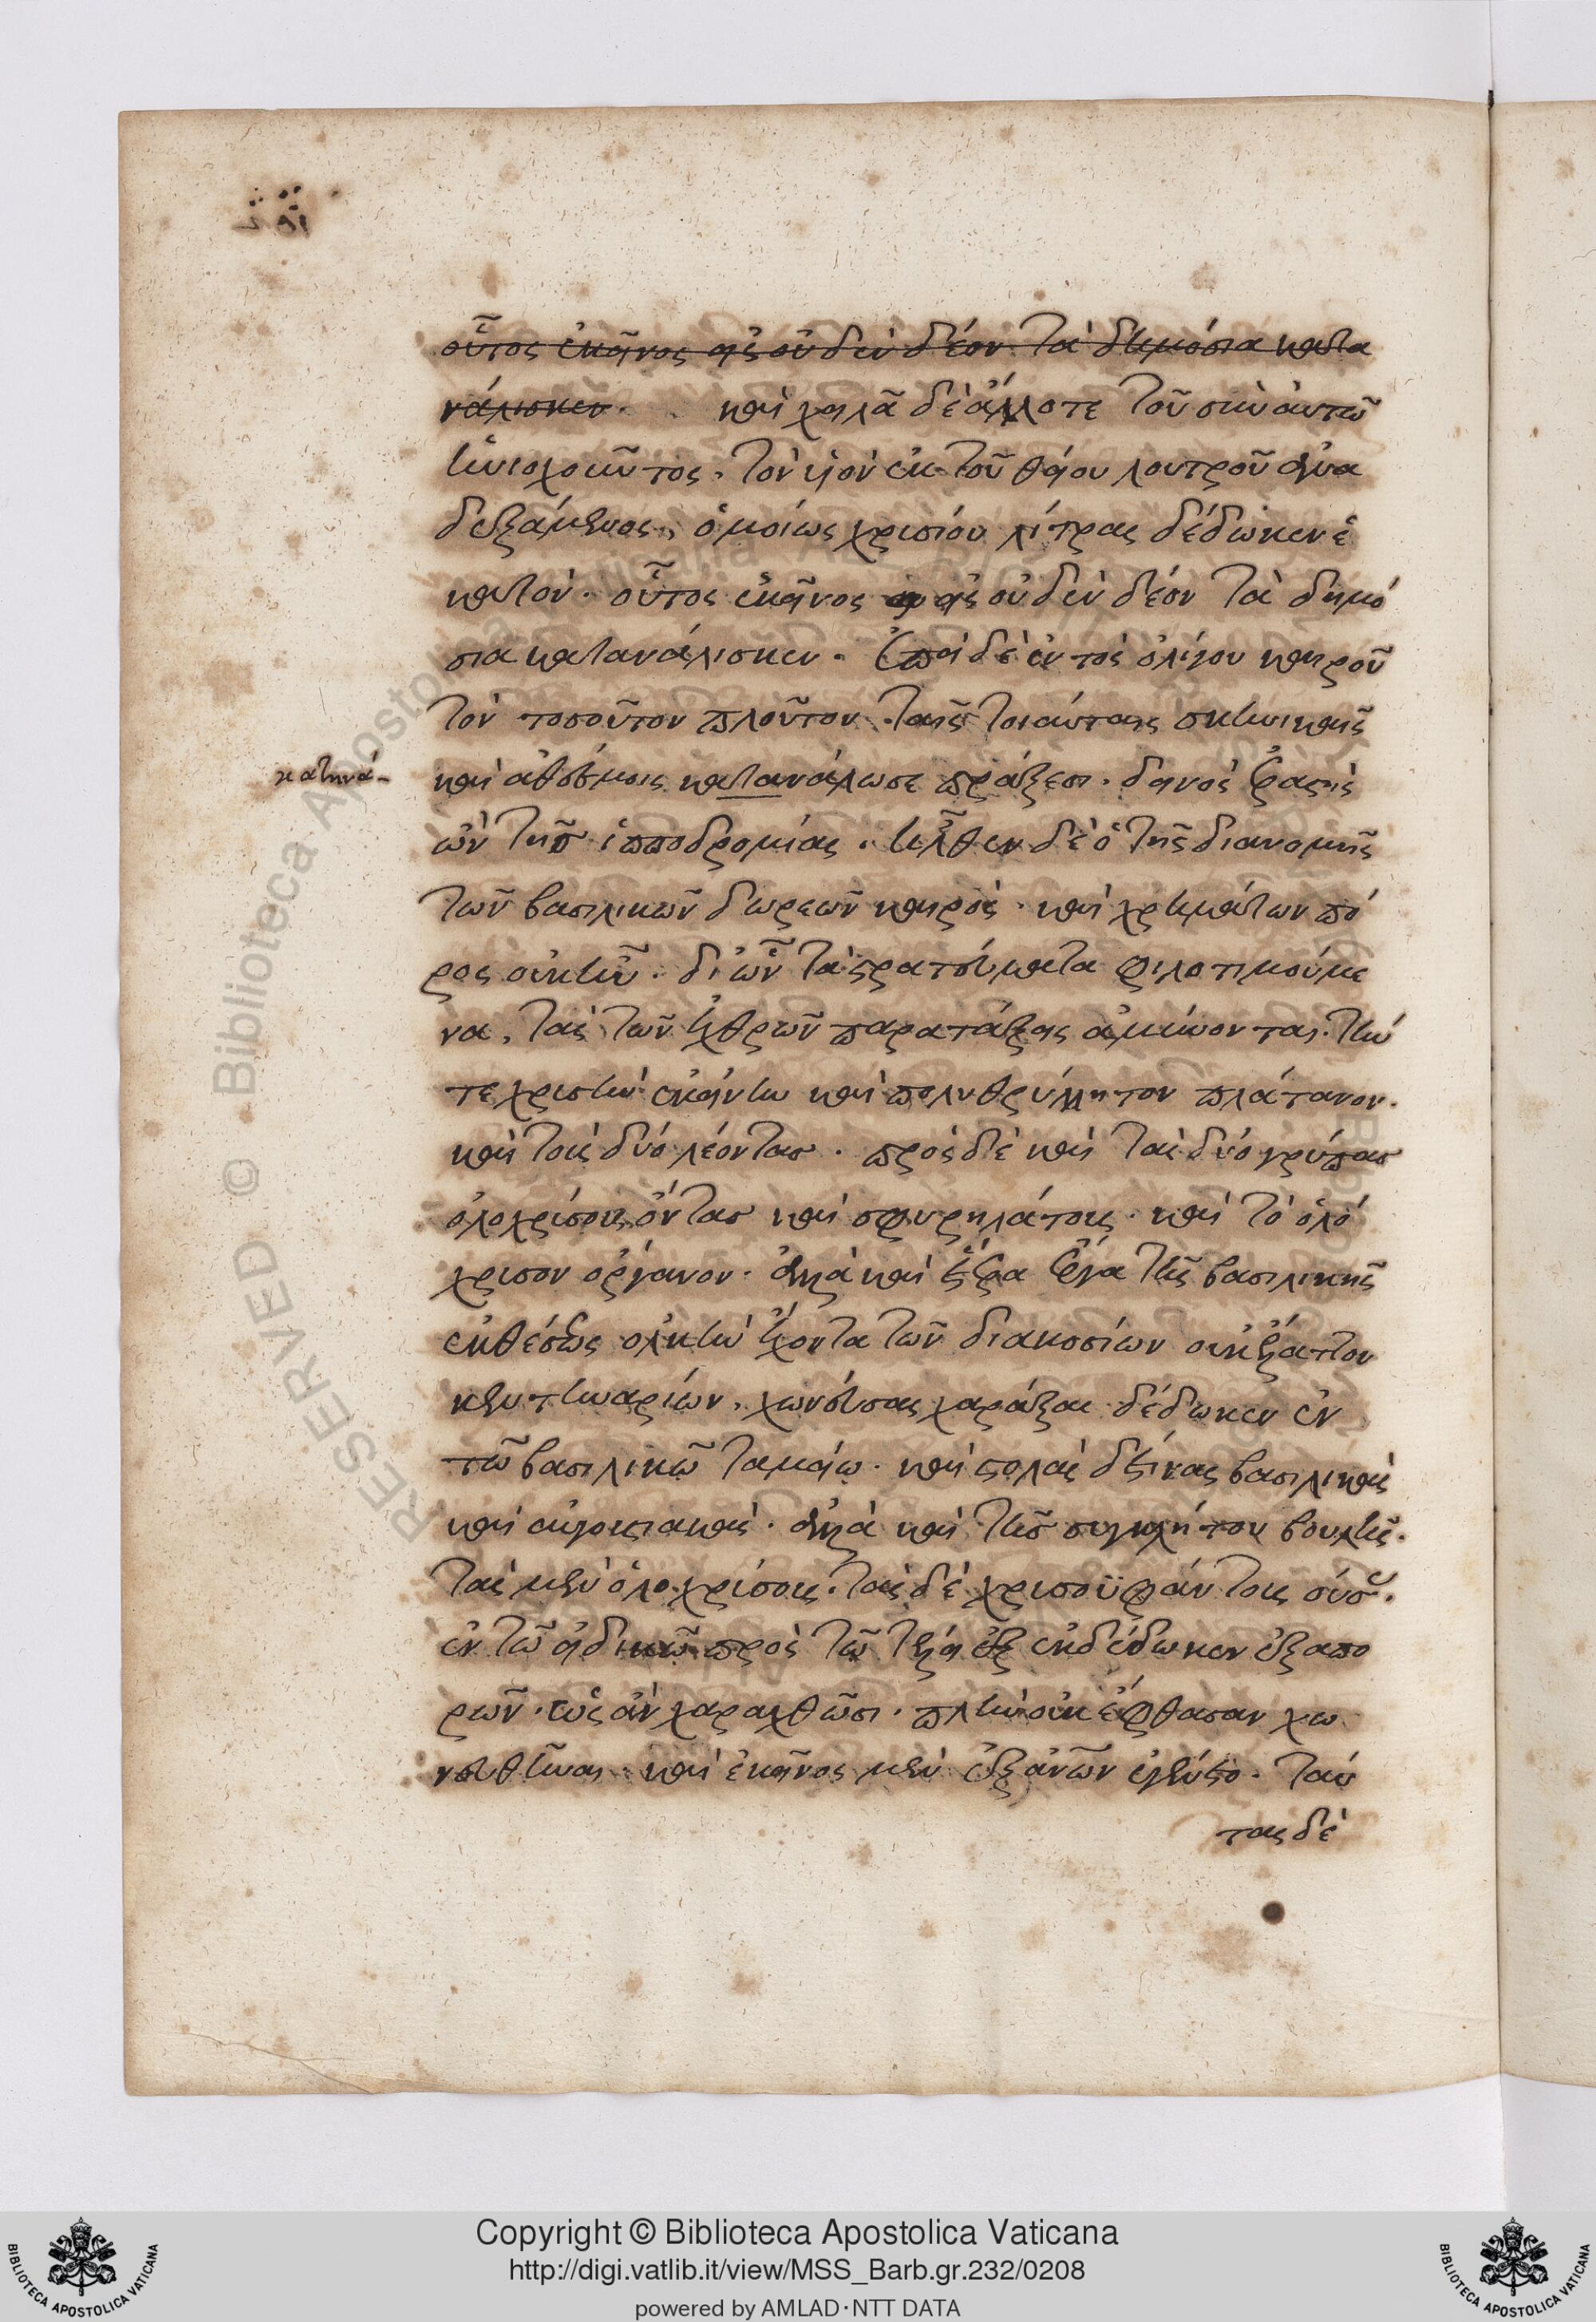 οὗτος ἐκεῖνος εἰς οὐδὲν δέον τὰ δημόσια κατα
νάλισκεν. καὶ χειλᾶ δὲ ἄλλοτε τοῦ σὺν αὐτῶ
ἡνιοχοῦντος, τὸν υἱὸν ἐκ τοῦ θείου λουτροῦ ἀνα
δεξάμενος, ὁμοίως χρυσίου λίτρας δέδωκεν ἑ
κατόν. οὗτος ἐκεῖνος εἰς οὐδὲν δέον τὰ δημό
σια κατανάλισκεν. ἐπεὶ δὲ ἐντὸς ὀλίγου καιροῦ
τὸν τοσοῦτον πλοῦτον ταῖς τοιαύταις σκηνικαῖς
κατηνά-
καὶ ἀθέσμοις κατανάλωσε πράξεσι. δεινὸς ἐραστὴς
ὢν τῆς ἱπποδρομίας. ἦλθεν δὲ ὁ τῆς διανομῆς
τῶν βασιλικῶν δωρεῶν καιρὸς. καὶ χρημάτων πό
ρος οὐκ ἦν. δι' ὧν τὰ στρατεύματα φιλοτιμούμε
να, τὰς τῶν ἐχθρῶν παρατάξεις ἀμύνονται. τήν
τε χρυσῆν ἐκείνην καὶ πολυθρύλλητον πλάτανον.
καὶ τοὺς δύο λέοντας. πρὸς δὲ καὶ τοὺς δύο γρύπας
ὁλοχρύσους ὄντας καὶ σφυρηλάτους. καὶ τὸ ὁλό
χρυσον ὄργανον. ἀλλὰ καὶ ἕτερα ἔργα τῆς βασιλικῆς
ἐκθέσεως ὁλκὴν ἔχοντα τῶν διακοσίων οὐκ ἔλαττον
κεντηναρίων, χωνεύσας χαράξαι δέδωκεν ἐν
τῶ βασιλικῶ ταμείω. καὶ στολὰς δὲ τινας βασιλικὰς
καὶ αὐγουστιακὰς. ἀλλὰ καὶ τῆς συγκλήτου βουλῆς.
τὰς μὲν ὁλοχρύσους. τὰς δὲ χρυσοϋφάντους οὔσας.
ἐν τῶ εἰδικῶ πρὸς τῶ τέλει ἐξ ἐκδέδωκεν ἐξαπο
ρῶν. ὡς ἂν χαραχθῶσι. πλὴν οὐκ ἔφθασαν χω
νευθῆναι. καὶ ἐκεῖνος μὲν ἐξ ἀνῶν ἐγένετο. ταύ
τας δὲ
Copyright © Biblioteca Apostolica Vaticana
http://digi.vatlib.it/view/MSS_Barb.gr.232/0208
powered by AMLAD·NTT DATA
BIBLIOTECA APOSTOLICA VATICANA
BIBLIOTECA APOSTOLICA VATICANA